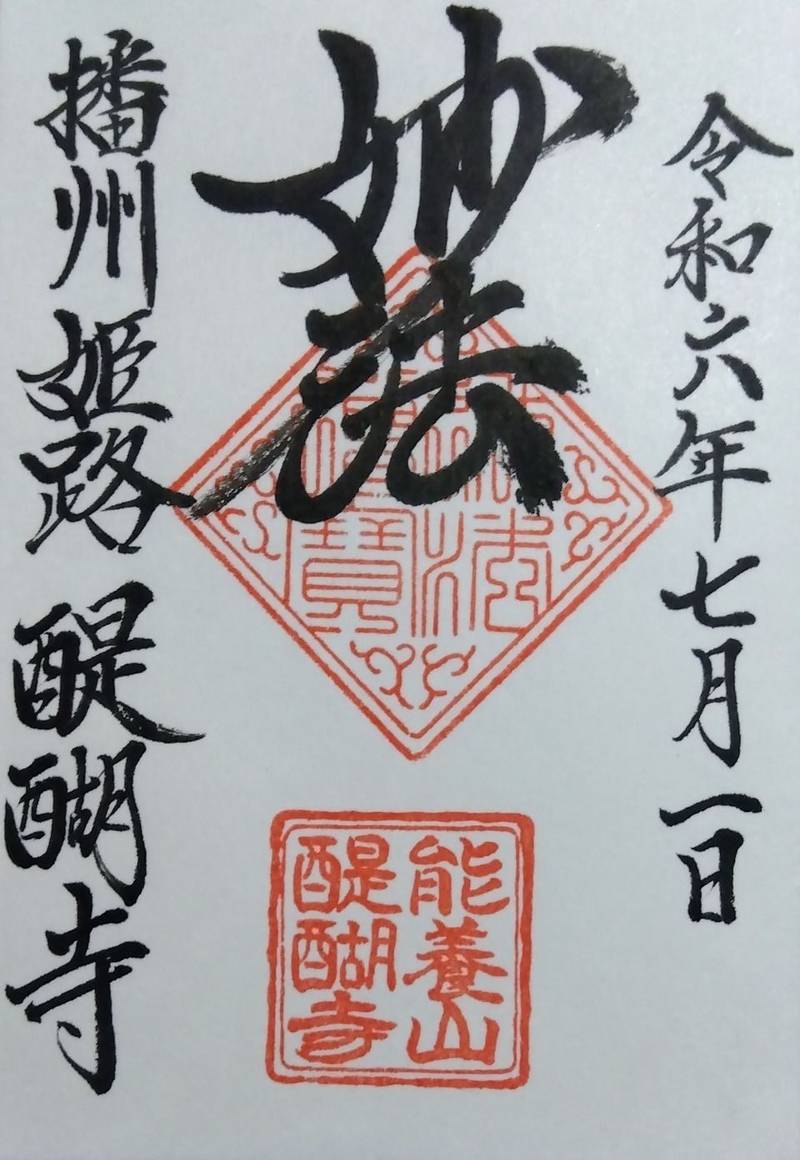 令和六年七月一日
妙法
佛法
僧寶
能養山
醍醐寺
播州姫路 醍醐寺